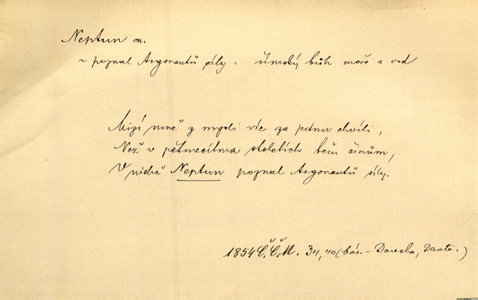 Neptun m.
v poznal Argonautů síly = římský bůh moře a vod
Mizí mně z mysli víc za jednu chvíli,
Než v pětmecítma stoletích těm činům,
V nichž Neptun poznal Argonautů síly.
1854 Č.Č.M. 34, 40 (bás. - Doucha, Dante.)